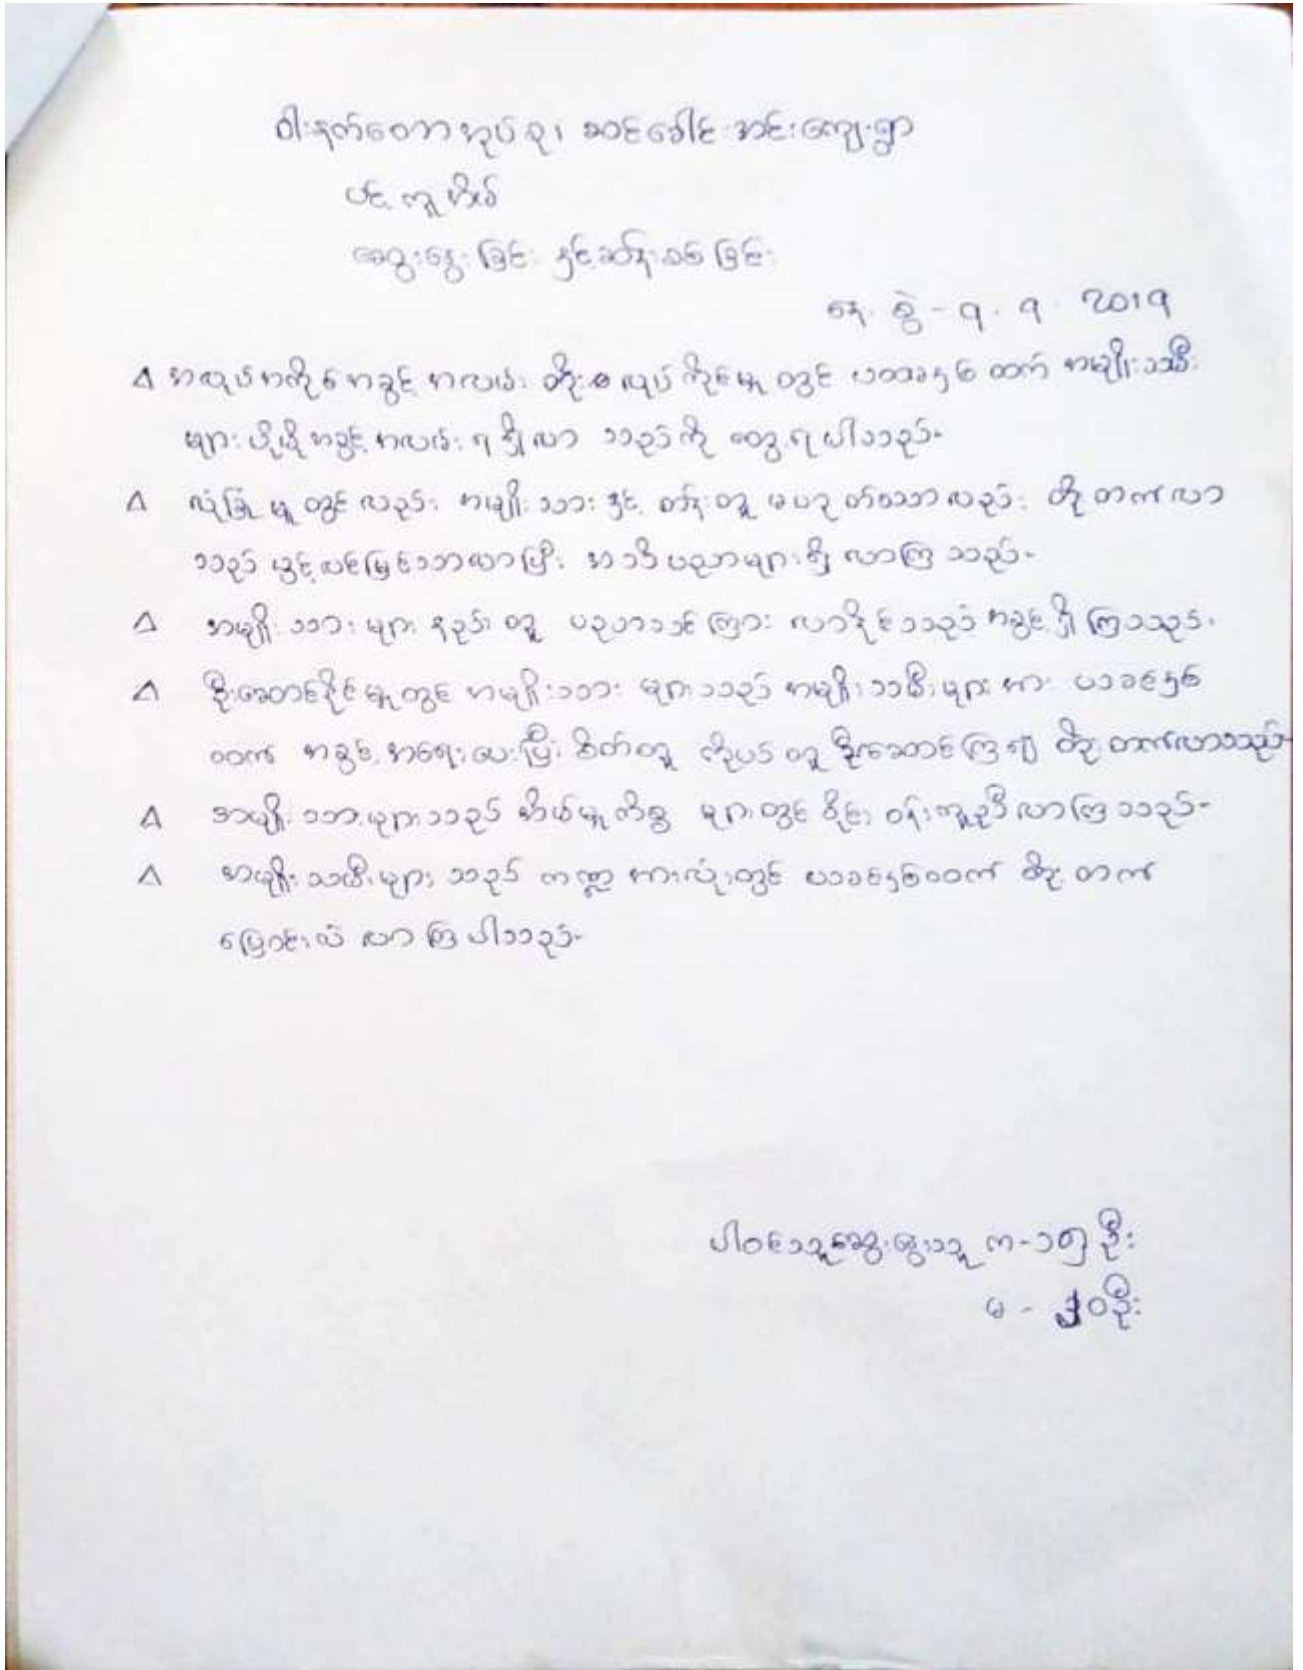 ဝါးနက်တောအုပ်စု၊ ဆင်ခေါင်းအင်းကျေးရွာ
ပင့်ကူအိမ်
ဆွေးနွေးခြင်း နှင့်ဆန်းစစ်ခြင်း
နေ့စွဲ - ၅.၇.2019
△ အလုပ်အကိုင် အခွင့်အလမ်း တိုးစေ လုပ်ကိုင်မှုတွင် ပထမနှစ်ထက် အမျိုးသမီး
များ ပိုမိုအခွင့်အလမ်းရရှိလာ သည်ကို တွေ့ရပါသည်။
△ လုံခြုံမှုတွင်လည်း အမျိုးသား နှင့် တန်းတူ မဟုတ်သော်လည်း တိုးတက်လာ
သည် ပွင့်လင်းမြင်သာလာပြီး အသိပညာများရှိလာကြသည်။
△ အမျိုးသားများ နည်းတူ ပညာသင်ကြားလာနိုင်သည့် အခွင့်ရှိကြသည်။
△ ဦးဆောင်နိုင်မှုတွင် အမျိုးသားများသည် အမျိုးသမီးများအား ယခင်နှစ်
ထက် အခွင့်အရေးပေးပြီး စိတ်တူ ကိုယ်တူ ဦးဆောင်ကြ၍ တိုးတက်လာသည်
△ အမျိုးသားများသည် အိမ်မှုကိစ္စများတွင် ဝိုင်းဝန်းကူညီလာကြသည်။
△ အမျိုးသမီးများသည် ကဏ္ဍအားလုံးတွင် ယခင်နှစ်ထက် တိုးတက်
ပြောင်းလဲလာကြပါသည်။
ပါဝင်သူဆွေးနွေးသူ က-၁၅ဦး
မ - ၃၀ဦး